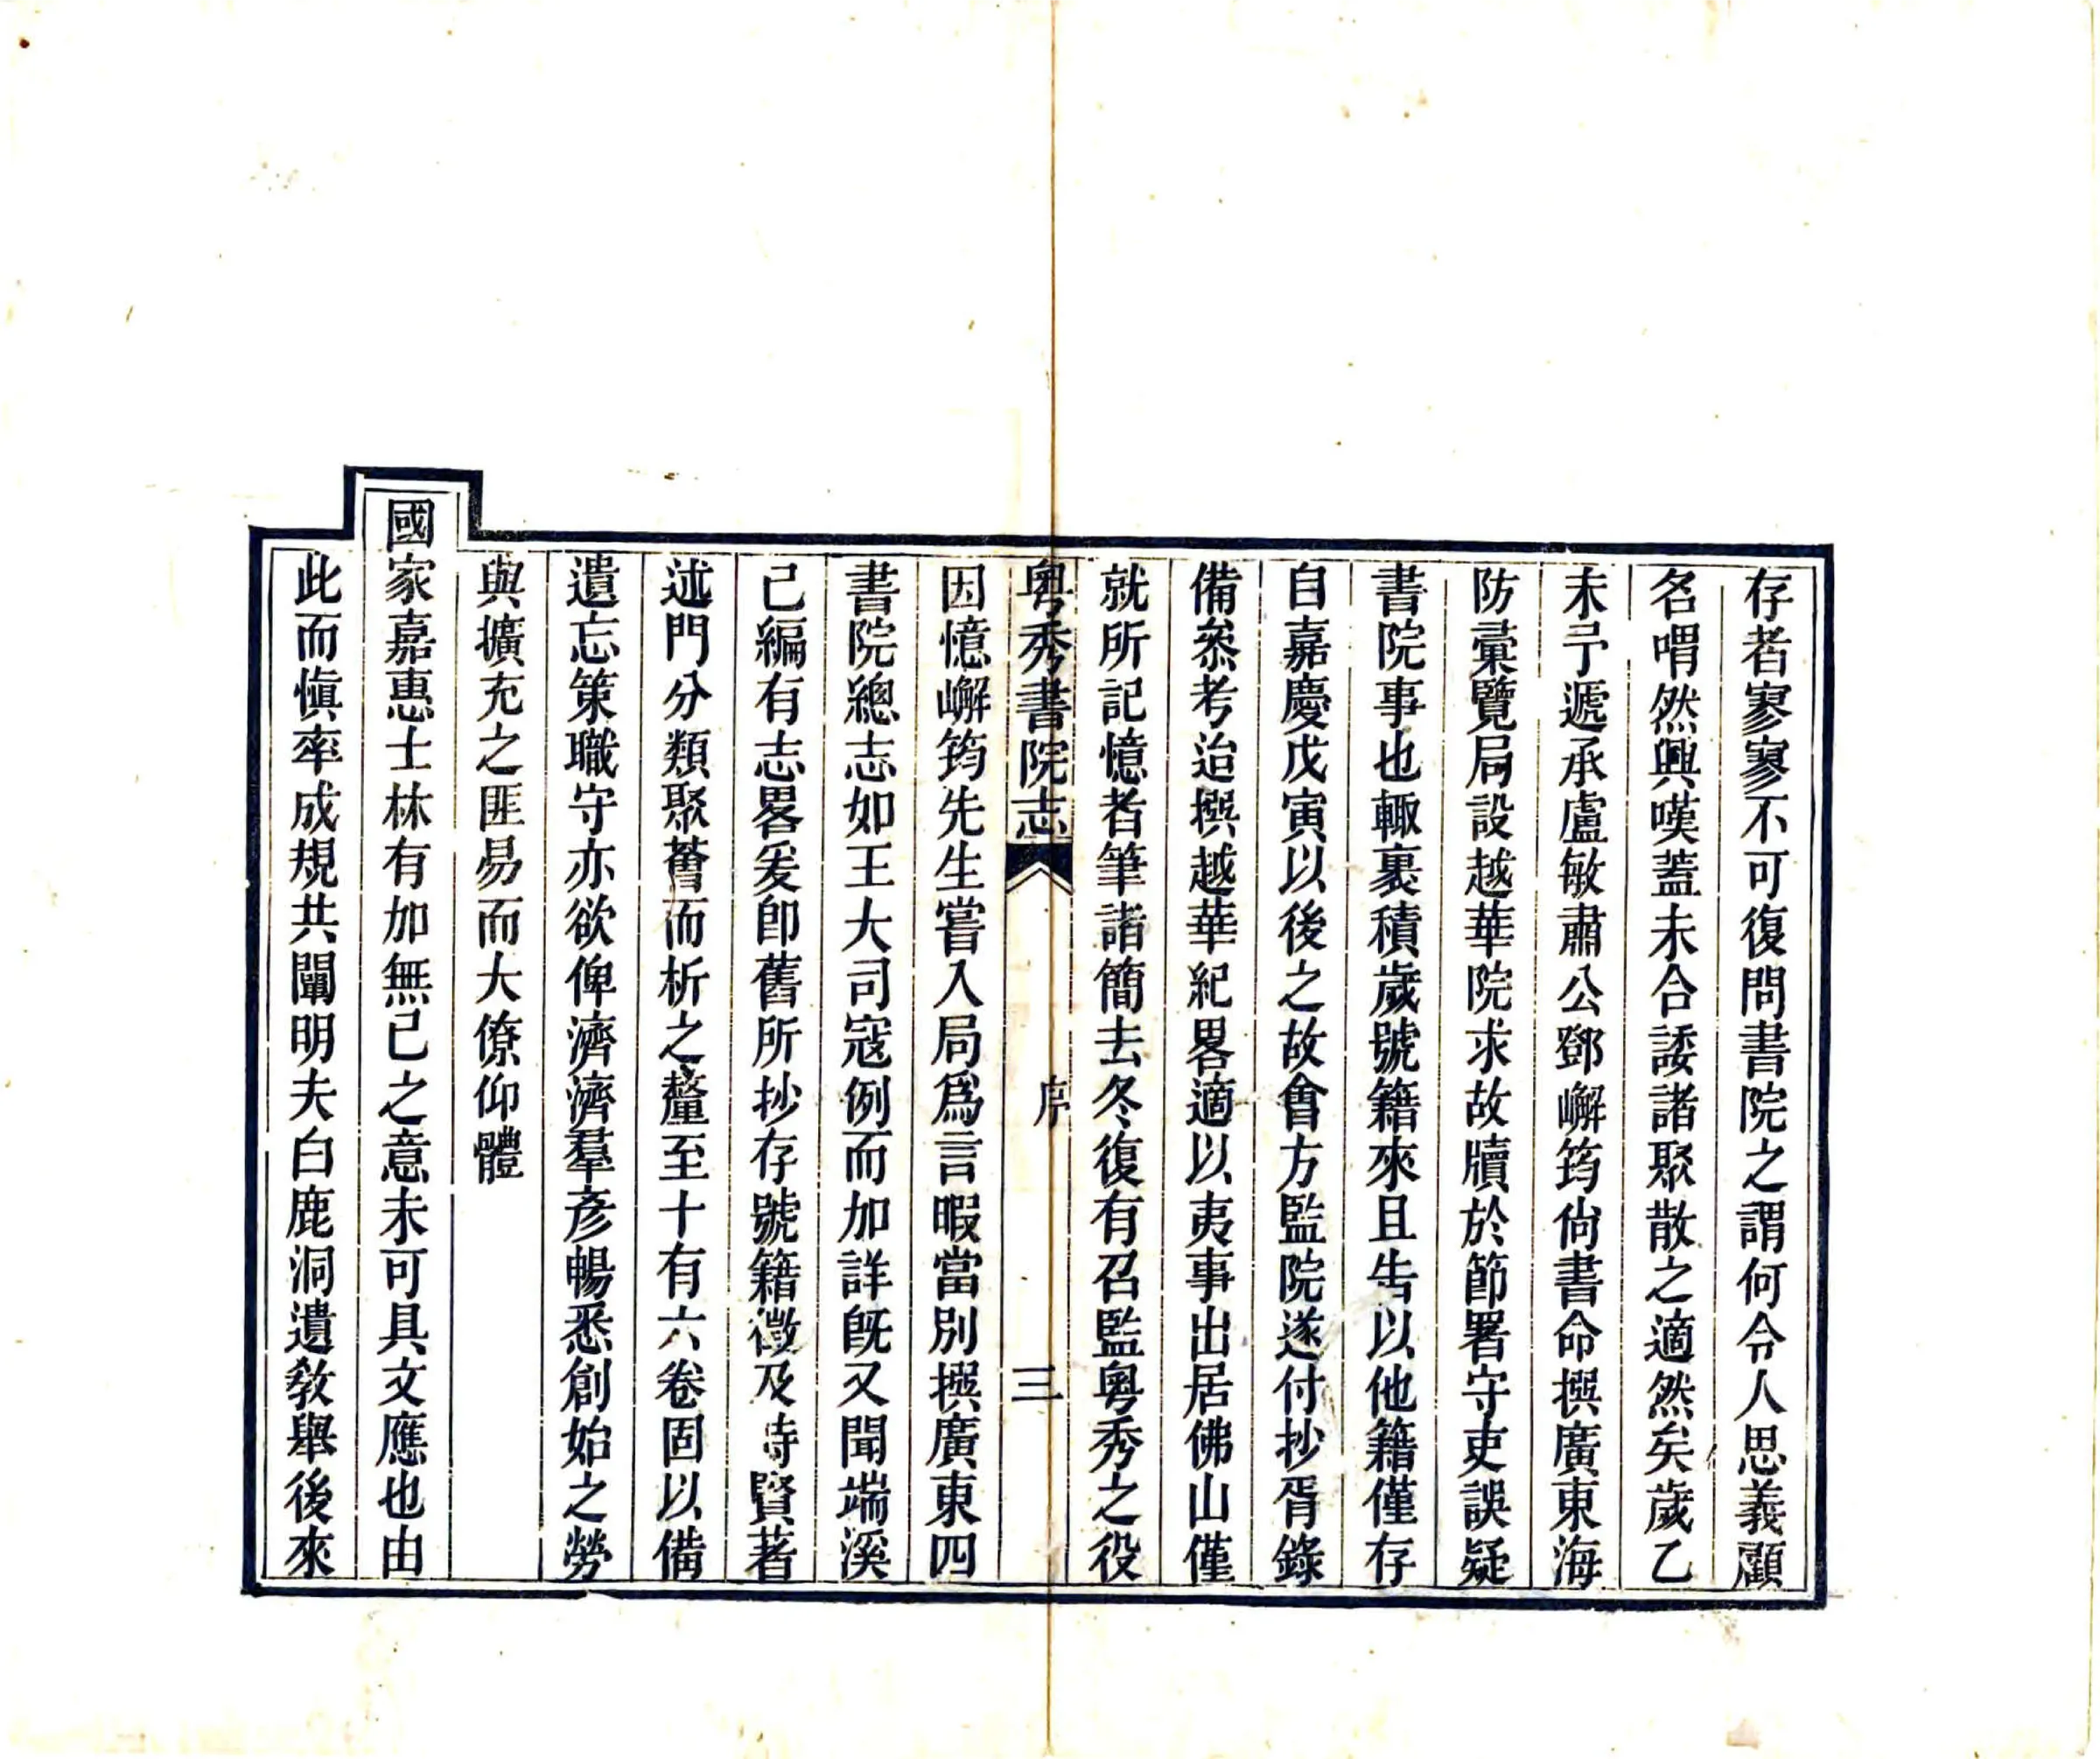 存者寥寥不可復問書院之謂何令人思義顧
名喟然興嘆蓋未合諉諸聚散之適然矣歲乙
未予遞承盧敏肅公鄧嶰筠尙書命撰廣東海
防彙覽局設越華院求故牘於節署守吏誤疑
書院事也輙裹積歲號籍來且告以他籍僅存
自嘉慶戊寅以後之故會方監院遂付抄胥錄
備叅考迨撰越華紀畧適以夷事出居佛山僅
就所記憶者筆諸簡去冬復有召監粵秀之役
粵秀書院志 序 三
因憶嶰筠先生嘗入局爲言暇當別撰廣東四
書院總志如王大司寇例而加詳旣又聞端溪
已編有志畧爰卽舊所抄存號籍徵及時賢著
述門分類聚薈而析之釐至十有六卷固以備
遺忘策職守亦欲俾濟濟羣彥暢悉創始之勞
與擴充之匪易而大僚仰體
國家嘉惠士林有加無已之意未可具文應也由
此而愼率成規共闡明夫白鹿洞遺敎舉後來